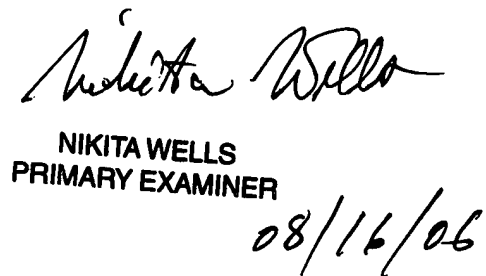 Nikita Wells
NIKITA WELLS
PRIMARY EXAMINER
08/16/06